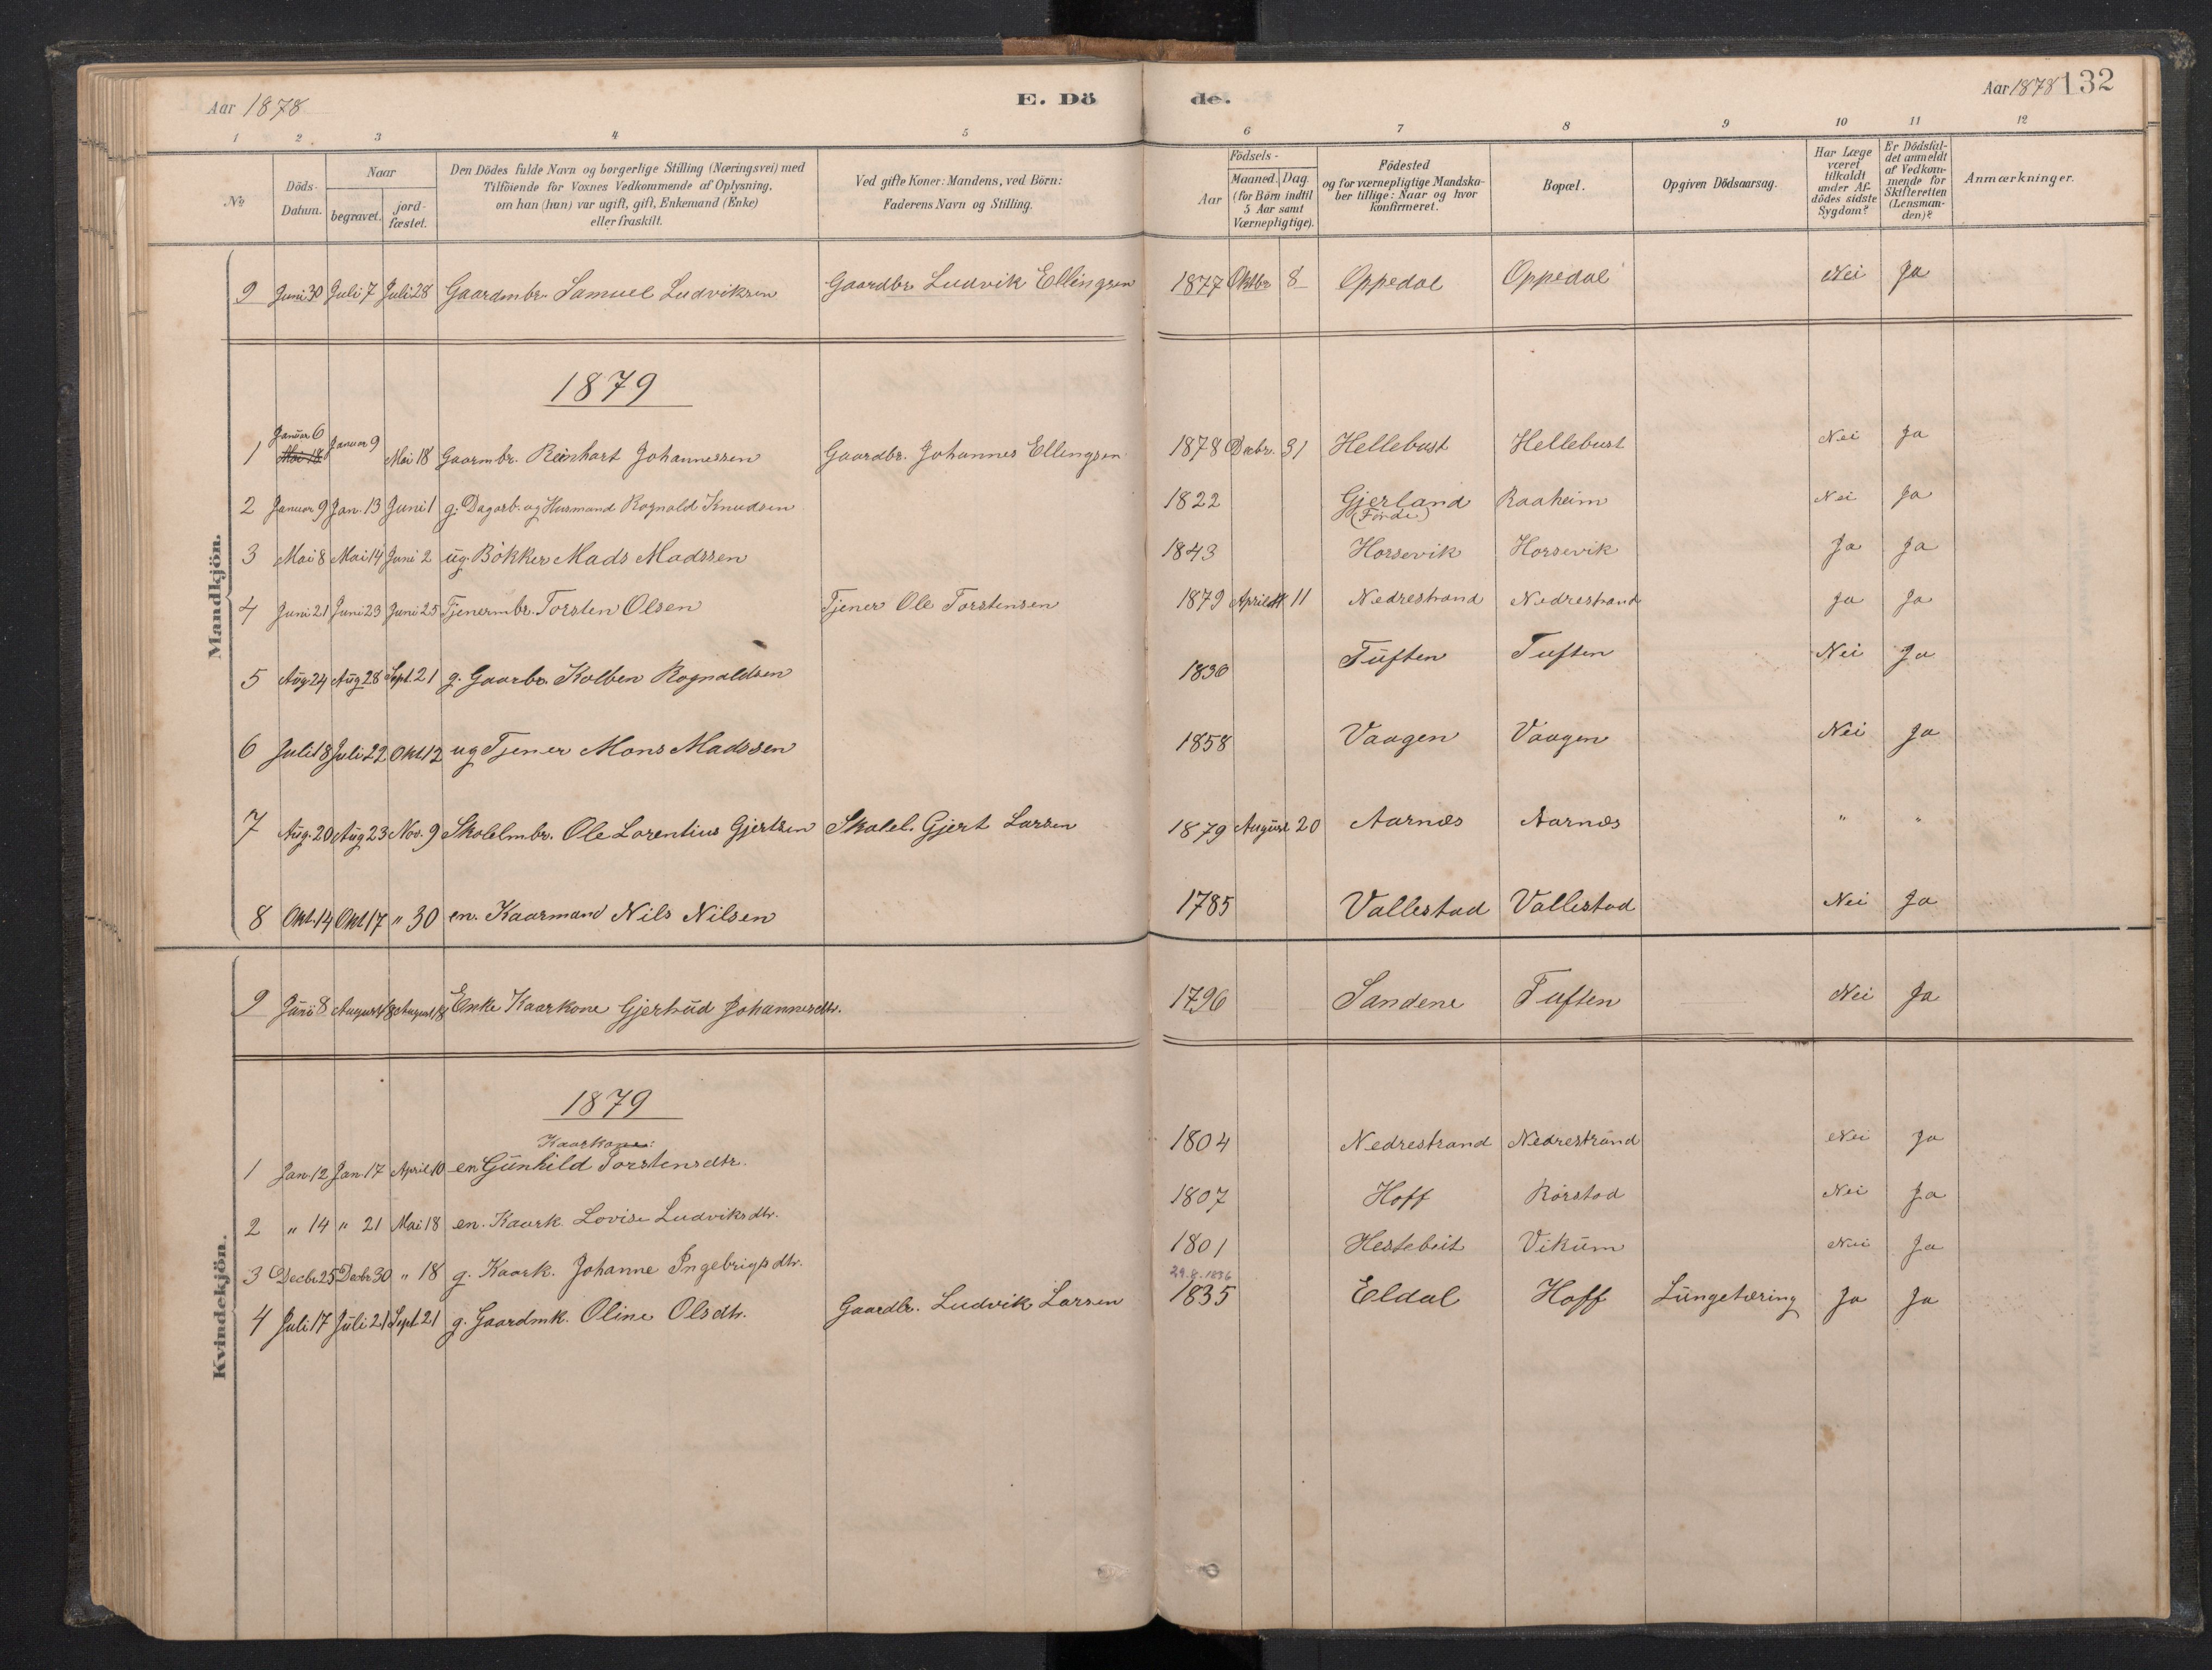 Aar 1878
E. Dö de.
Aar 1878 132
1 2 3 4 5 6 7 8 9 10 11 12
№
Döds-Datum.
Naar
begravet.
jord-fæstet.
Den Dödes fulde Navn og borgerlige Stilling (Næringsvei) med
Tilföiende for Voxnes Vedkommende af Oplysning,
om han (hun) var ugift, gift, Enkemand (Enke)
eller fraskilt.
Ved gifte Koner: Mandens, ved Börn:
Faderens Navn og Stilling.
Födsels-
Aar
Maaned. Dag.
(for Börn indtil
5 Aar samt
Værnepligtige).
Födested
og for værnepligtige Mandska-
ber tillige: Naar og hvor
konfirmeret.
Bopæl.
Opgiven Dödsaarsag.
Har Læge
været
tilkaldt
under Af-
dödes sidste
Sygdom?
Er Dödsfal-
det anmeldt
af Vedkom-
mende for
Skifteretten
(Lensman-
den)?
Anmærkninger.
Mandkjön.
9 Juni 30 Juli 7 Juli 28 Gaardmbr. Samuel Ludviksen Gaardbr. Ludvik Ellingsen 1877 Oktbr 8 Oppedal Oppedal Nei Ja
1879
1 Januar 6 Mai 18 Januar 9 Mai 18 Gaarmbr. Reinhart Johannessen Gaardbr. Johannes Ellingsen 1878 Decbr. 31 Hellebust Hellebust Nei Ja
2 Januar 9 Jan. 13 Juni 1 g. Dagarb. og Husmand Rognald Knudsen 1822 Gjerland (Förde) Raaheim Nei Ja
3 Mai 8 Mai 14 Juni 2 ug. Bökker Mads Madssen 1843 Horsevik Horsevik Ja Ja
4 Juni 21 Juni 23 Juni 25 Tjenermbr. Torsten Olsen Tjener Ole Torstensen 1879 April 11 Nedrestrand Nedrestrand Ja Ja
5 Aug 24 Aug 28 Sept. 21 g. Gaarbr. Kolben Rognaldsen 1830 Tuften Tuften Nei Ja
6 Juli 18 Juli 22 Okt 12 ug Tjener Mons Madssen 1858 Vaagen Vaagen Nei Ja
7 Aug. 20 Aug 23 Nov. 9 Skolelmbr. Ole Lorentius Gjertsen Skolel. Gjert Larsen 1879 August 20 Aarnæs Aarnæs " "
8 Okt. 14 Okt 17 " 30 en. Kaarmand Nils Nilsen 1785 Vallestad Vallestad Nei Ja
Kvindekjön.
9 Juni 8 August 18 August 18 Enke Kaarkone Gjertrud Johannesdtr. 1796 Sandene Tuften Nei Ja
1879
Kaarkone:
1 Jan. 12 Jan. 17 April 10 en Gunhild Torstensdtr. 1804 Nedrestrand Nedrestrand Nei Ja
2 " 14 " 21 Mai 18 en. Kaark. Lovise Ludviksdtr. 1807 Hoff Rörstad Nei Ja
3 Decbr 25 Decbr 30 " 18 g. Kaark. Johanne Ingebrigtsdtr. 1801 Hestebeit Vikum Nei Ja
29.8.1836
4 Juli 17 Juli 21 Sept 21 g. Gaardmk. Oline Olsdtr. Gaardbr. Ludvik Larsen 1835 Eldal Hoff Lungetæring Ja Ja